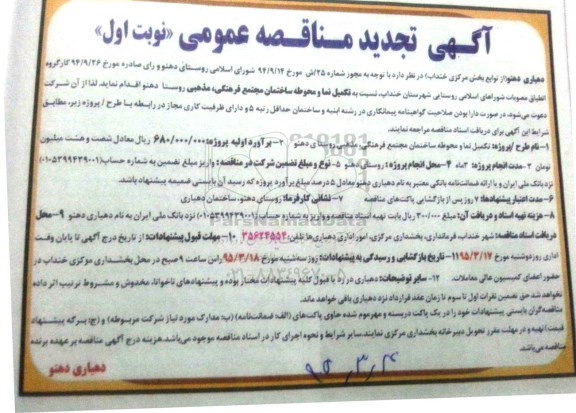 آگهی تجدید مناقصه عمومی «نوبت اول»
دهیاری دهنو از توابع بخش مرکزی خنداب در نظر دارد با توجه به مجوز شماره ۲۵/ش مورخ ۹۴/۹/۱۴ شورای اسلامی روستای دهنو و رای صادره مورخ ۹۴/۹/۲۶ کارگروه
انطباق مصوبات شوراهای اسلامی روستایی شهرستان خنداب، نسبت به تکمیل نما و محوطه ساختمان مجتمع فرهنگی، مذهبی روستا دهنو اقدام نماید. لذا از آن شرکت
دعوت می‌شود، در صورت دارا بودن صلاحیت گواهینامه پیمانکاری در رشته ابنیه و ساختمان حداقل رتبه ۵ و دارای ظرفیت کاری مجاز در رابطه با طرح / پروژه زیر، مطابق
شرایط این آگهی برای دریافت اسناد مناقصه مراجعه نمایند.
۱- نام طرح / پروژه: تکمیل نما و محوطه ساختمان مجتمع فرهنگی، مذهبی روستای دهنو ۲- برآورد اولیه پروژه: ۶۸۰/۰۰۰/۰۰۰ ریال معادل شصت و هشت میلیون
تومان ۳- مدت انجام پروژه: ۲ماه ۴- محل انجام پروژه: روستای دهنو ۵- نوع و مبلغ تضمین شرکت در مناقصه: واریز مبلغ تضمین به شماره حساب
نزد بانک ملی ایران و یا ارائه ضمانتنامه بانکی معتبر به نام دهیاری دهنو معادل ۵ درصد مبلغ برآورد پروژه که رسید آن بایستی ضمیمه پیشنهاد باشد.
۶- مدت اعتبار پیشنهادها: ۷ روز پس از بازگشایی پاکت‌های مناقصه ۷- نشانی کارفرما: روستای دهنو، ساختمان دهیاری
۸- هزینه تهیه اسناد و دریافت آن: مبلغ ۳۰۰/۰۰۰ ریال بابت تهیه اسناد مناقصه و واریز به شماره حساب نزد بانک ملی ایران به نام دهیاری دهنو ۹- محل
دریافت اسناد مناقصه: شهر خنداب، فرمانداری، بخشداری مرکزی، امور اداری دهیاری‌ها تلفن: ۳۵۶۲۴۵۵۴ ۱۰- مهلت قبول پیشنهادات: از تاریخ درج آگهی تا پایان وقت
اداری روز دوشنبه مورخ ۹۵/۳/۱۷ ۱۱- تاریخ بازگشایی و رسیدگی به پیشنهادات: روز سه‌شنبه مورخ ۹۵/۳/۱۸ راس ساعت ۹ صبح در محل بخشداری مرکزی خنداب در
حضور اعضای کمیسیون عالی معاملات ۱۲- سایر توضیحات: دهیاری در رد یا قبول کلیه پیشنهادات مختار بوده و پیشنهادهای ناخوانا، مخدوش و مشروط ترتیب اثر داده
نخواهد شد حق تضمین نفرات اول تا سوم تا زمان عقد قرارداد نزد دهیاری باقی خواهد ماند.
مناقصه‌گران بایستی پیشنهادات خود را در یک پاکت دربسته و مهرموم شده حاوی پاکت‌های (الف: ضمانتنامه)، (ب: مدارک مورد نیاز شرکت مربوطه) و (ج: برگه پیشنهاد
قیمت) تهیه و در مهلت مقرر تحویل دبیرخانه بخشداری مرکزی نمایند. سایر شرایط و نحوه اجرای کار در اسناد مناقصه موجود می‌باشد. هزینه درج آگهی مناقصه بر عهده برنده
مناقصه می‌باشد.
دهیاری دهنو
۹۵,۳,۴